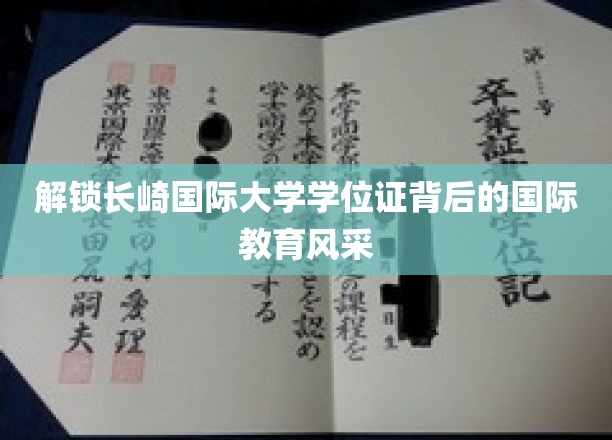 解锁长崎国际大学学位证背后的国际
教育风采
第 号
卒業証 学位記
本学商学部 定の課程を
修めて本学 ことを認め
学士(商学)の学 する
平成
東京国際大学 田村愛理
東京国際大学 長田尻嗣夫